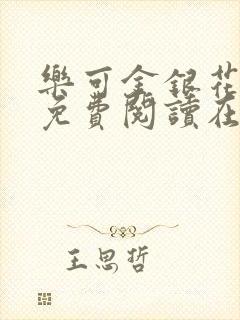 樂可金銀花
免費閱讀在
王思哲